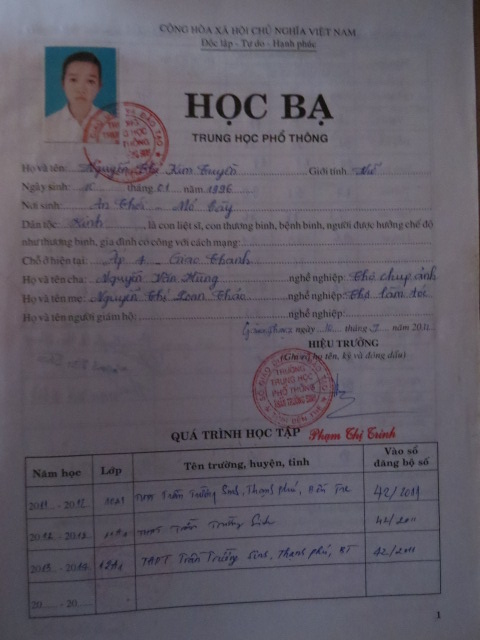 CỘNG HÒA XÃ HỘI CHỦ NGHĨA VIỆT NAM
Độc lập - Tự do - Hạnh phúc
HỌC BẠ
TRUNG HỌC PHỔ THÔNG
Họ và tên: Nguyễn Thị Kim Tuyền Giới tính: Nữ
Ngày sinh: tháng 01 năm 1996
Nơi sinh: An Thới - Mỏ Cày
Dân tộc: Kinh, là con liệt sĩ, con thương binh, bệnh binh, người được hưởng chế độ
như thương binh, gia đình có công với cách mạng:
Chỗ ở hiện tại: Ấp 4 - Giao Thạnh
Họ và tên cha: Nguyễn Văn Hùng nghề nghiệp: Thợ chụp ảnh
Họ và tên mẹ: Nguyễn Thị Loan Thảo nghề nghiệp: Thợ làm tóc
Họ và tên người giám hộ: nghề nghiệp:
ngày tháng năm 2011
HIỆU TRƯỞNG
(Ghi rõ họ tên, ký và đóng dấu)
TRƯỜNG
TRUNG HỌC
PHỔ THÔNG
Phạm Thị Trinh
QUÁ TRÌNH HỌC TẬP
Năm học Lớp Tên trường, huyện, tỉnh Vào sổ đăng bộ số
2011 - 2012 THPT Trần Trường Sinh, Thạnh phú, Bến Tre 42/2011
2012 - 2013 THPT Trần Trường Sinh 42/2011
2013 - 2014 12A1 THPT Trần Trường Sinh, Thạnh phú, BT 42/2011
20..... - 20.....